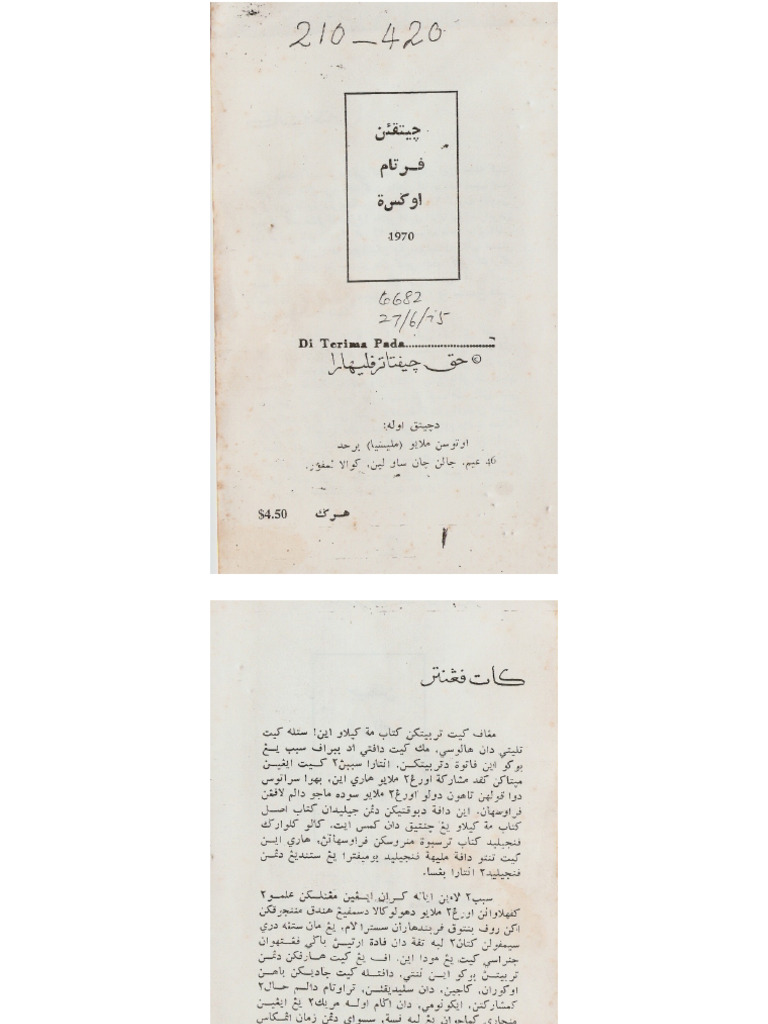 210-420
چيتقئن
فرتام
اوݢس ة
1970
6682
27/6/75
Di Terima Pada..........................
© حق چيفتا ترفليهارا
دچيتق اوله:
اوتوسن ملايو (مليسيا) برحد
46 عيم، جالن چان ساو لين، كوالا لمفور.
هرݢ $4.50
كات فڠنتر
مڤاف كيت تربيتكن كتاب مة كيلاو اين! ستله كيت
تليتي دان هالوسي، مك كيت دافتي اد ببراف سبب يڠ
بوكو اين فاتوة دتربيتكن. انتارا سببڽ٢ كيت ايڠين
مپتاكن كفد مشاركة اورڠ٢ ملايو هاري اين، بهوا سراتوس
دوا فولهن تاهون دولو اورڠ٢ ملايو سوده ماجو دالم لاڤڠن
فراوسهان. اين دافة دبوقتيكن دڠن جيليدان كتاب اصل
كتاب مة كيلاو يڠ چنتيق دان كمس ايت. كالو كلوارݢ
فنجيليد كتاب ترسبوة منروسكن فراوسهاڽ، هاري اين
كيت تنتو دافة مليهة فنجيليد بوميفترا يڠ ستنديڠ دڠن
فنجيليد٢ انتارا بڠسا.
سبب٢ لاين اياله كران ايڠين مڠنلكن علمو٢
كفهلاوانن اورڠ٢ ملايو دهولوكالا دسمفيڠ هندق منججرقكن
اكن روف بنتوق فربندهاران سسترا لام، يڠ مان ستڠه دري
سيمفولن كتاڽ٢ لبه تفة دان فادة ارتيڽ باݢي فڠتهوان
جنراسي كيت يڠ مودا اين. اف يڠ كيت هارفكن دڠن
تربيتڽ بوكو اين ننتي، دافتله كيت جاديكن باهن
اوكوران، كاجين، دان سليديقئن، تراوتام دالم حال٢
كمشاركتن، ايكونومي، دان اݢام اوله مريك٢ يڠ ايڠين
منچاري كماجوان يڠ لبه فسة، سسواي دڠن زمان اڠكاس